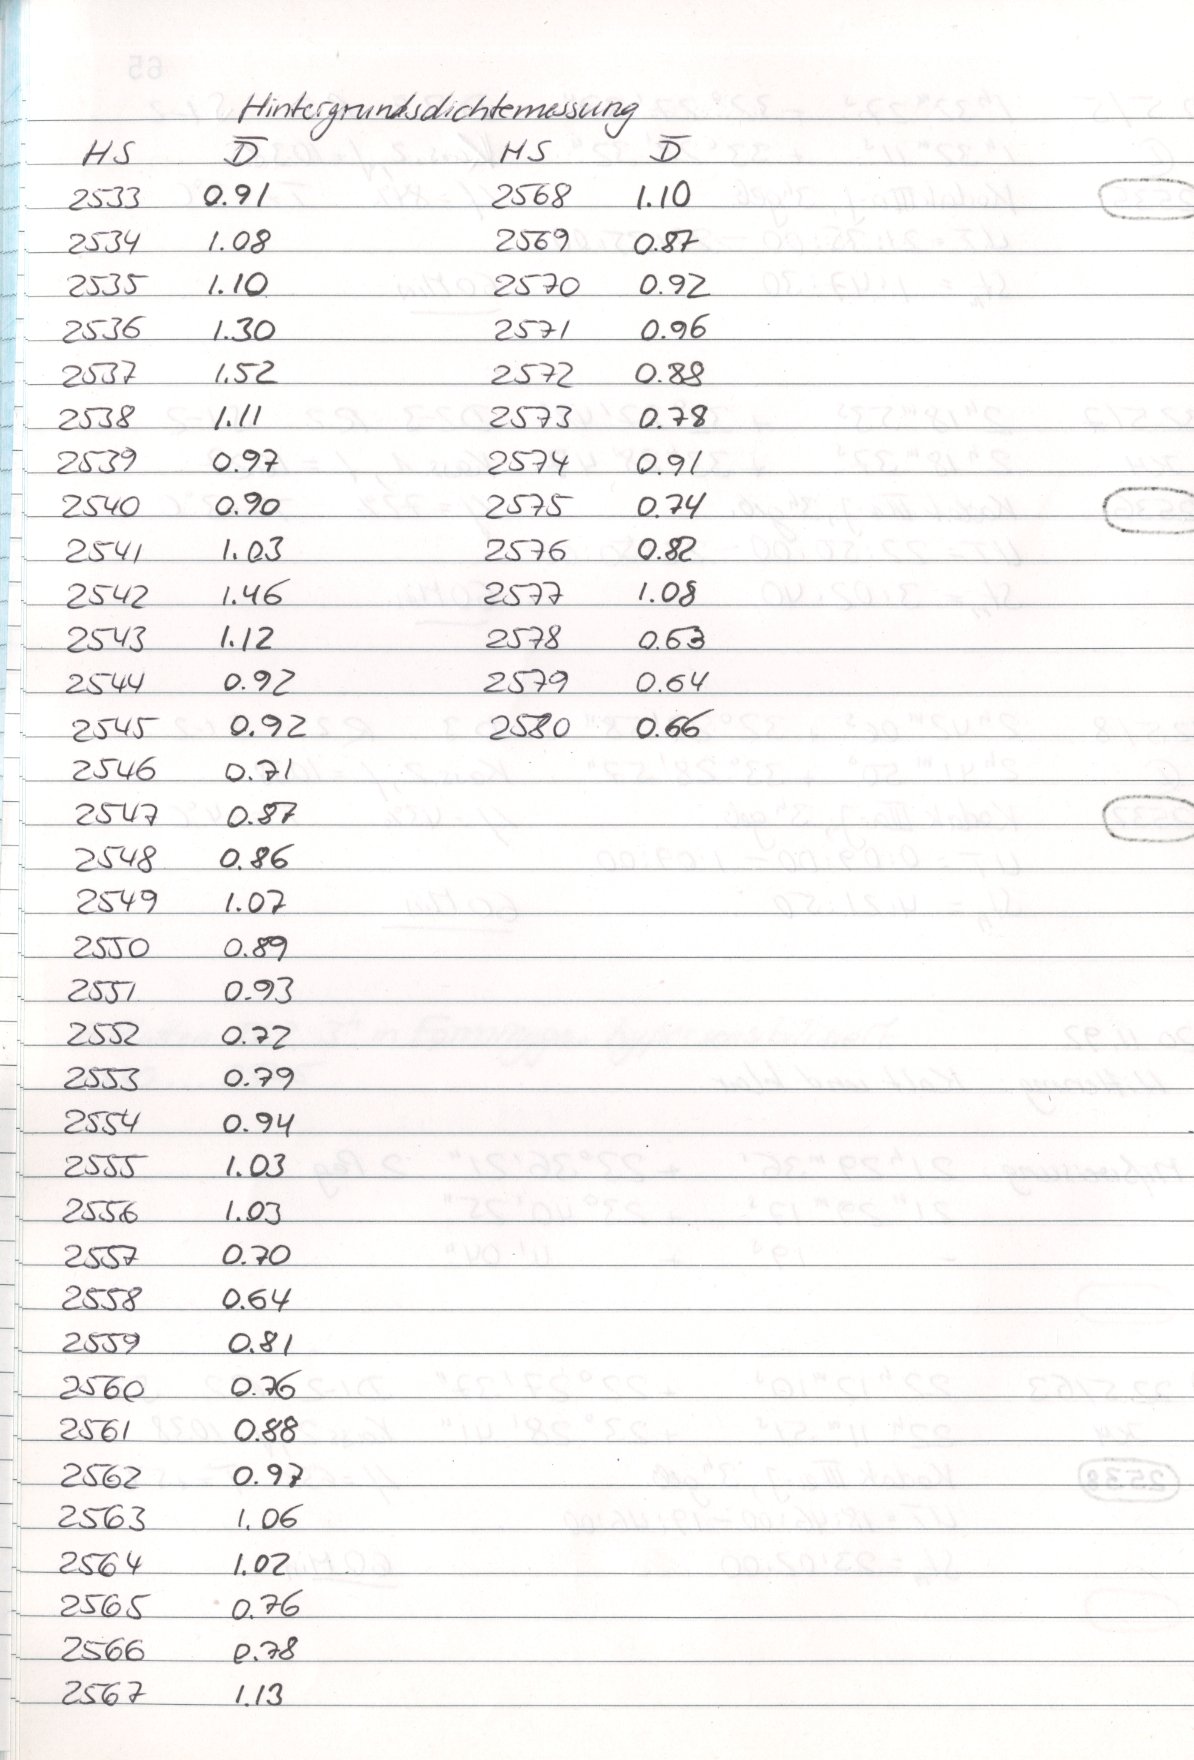 Hintergrundsdichtemessung
HS D̅ HS D̅
2533 0.91 2568 1.10
2534 1.08 2569 0.87
2535 1.10 2570 0.92
2536 1.30 2571 0.96
2537 1.52 2572 0.88
2538 1.11 2573 0.78
2539 0.97 2574 0.91
2540 0.90 2575 0.74
2541 1.03 2576 0.82
2542 1.46 2577 1.08
2543 1.12 2578 0.63
2544 0.92 2579 0.64
2545 0.92 2580 0.66
2546 0.71
2547 0.87
2548 0.86
2549 1.07
2550 0.89
2551 0.93
2552 0.72
2553 0.79
2554 0.94
2555 1.03
2556 1.03
2557 0.70
2558 0.64
2559 0.81
2560 0.76
2561 0.88
2562 0.97
2563 1.06
2564 1.02
2565 0.76
2566 0.78
2567 1.13